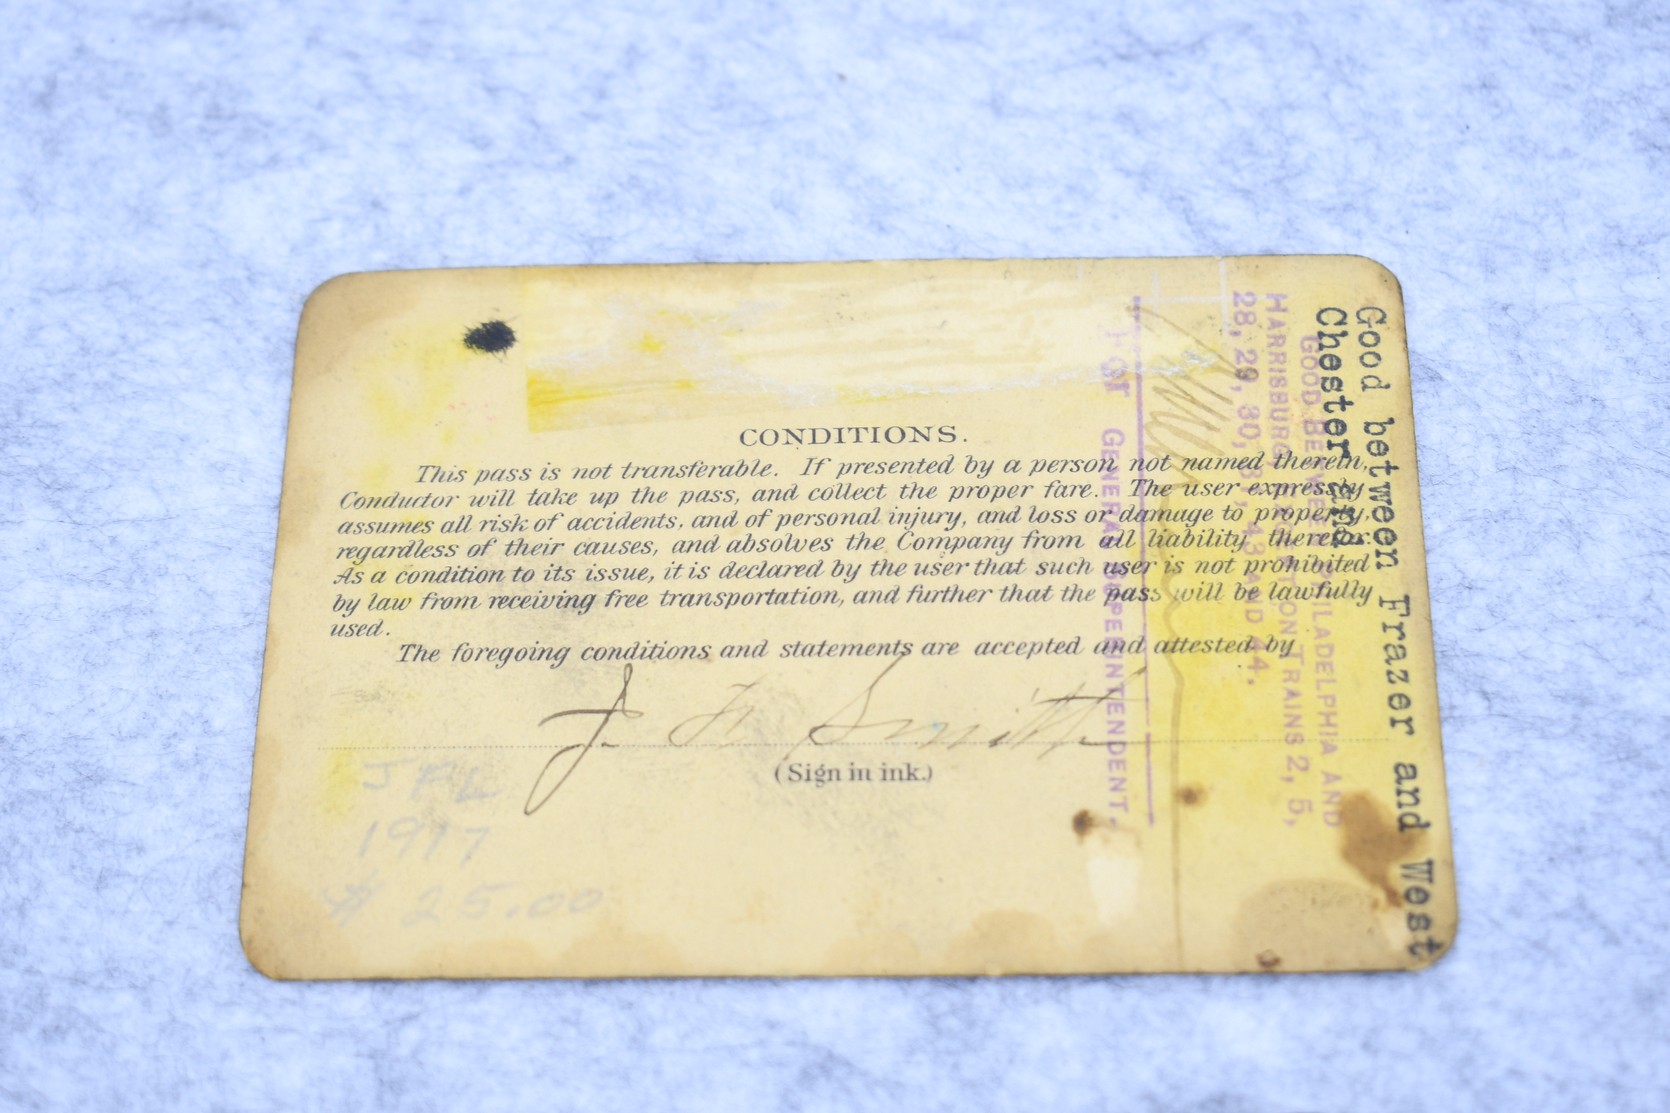 CONDITIONS.
This pass is not transferable. If presented by a person not named therein,
Conductor will take up the pass, and collect the proper fare. The user expressly
assumes all risk of accidents, and of personal injury, and loss or damage to property,
regardless of their causes, and absolves the Company from all liability therefor.
As a condition to its issue, it is declared by the user that such user is not prohibited
by law from receiving free transportation, and further that the pass will be lawfully
used.
The foregoing conditions and statements are accepted and attested by
J. F. Smith
(Sign in ink.)
JFL
1917
$ 25.00
Good between Frazer and West
Chester and
GOOD BETWEEN PHILADELPHIA AND
HARRISBURG, TRAINS 2, 5,
28, 29, 30, AND 44.
GENERAL SUPERINTENDENT.